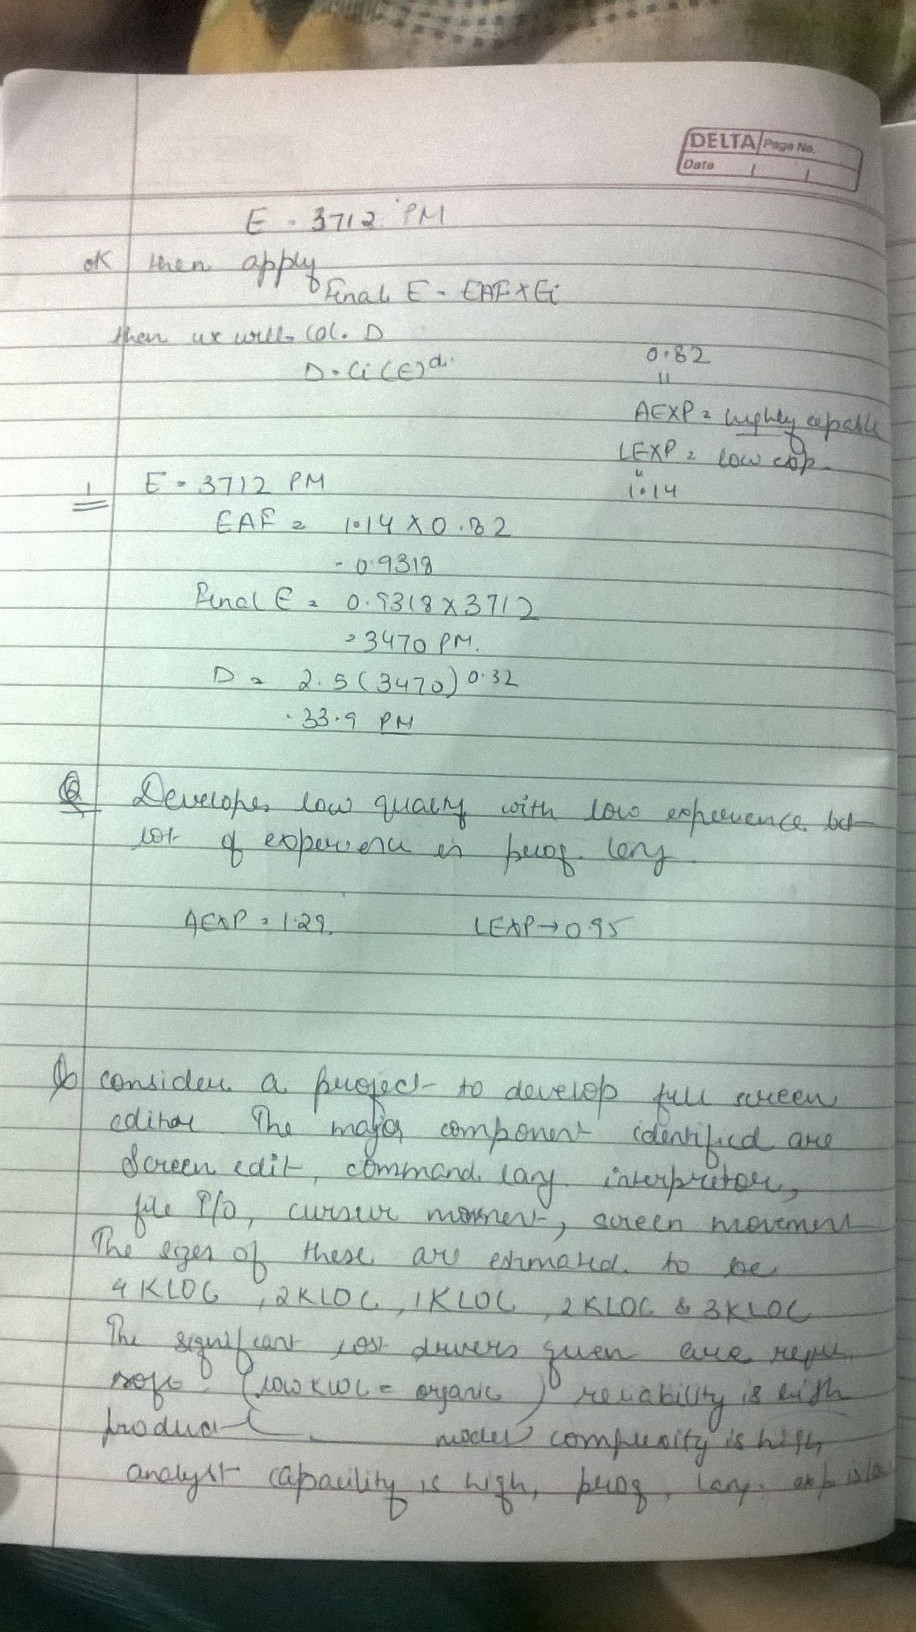 DELTA Page No.
Date / /
E = 3712 PM
OK then apply
Final E = EAF X Ei
then we will cal. D
D = Ci (E)di
0.82
"
AEXP = highly capable
LEXP = low cap.
"
1.14
1 E = 3712 PM
EAF = 1.14 X 0.82
= 0.9318
Final E = 0.9318 X 3712
= 3470 PM.
D = 2.5 (3470) 0.32
= 33.9 PM
Q Developer low quality with low experience but
lot of experience in prog. lang
AEXP = 1.29. LEXP → 0.95
Q consider a project to develop full screen
editor The major component identified are
Screen edit, command lang. interpretor,
file I/O, cursur movement, screen movement
The sizes of these are estimated to be
4 KLOC , 2 KLOC , 1 KLOC , 2 KLOC & 3 KLOC
The significant cost drivers given are
(low KLOC = organic reliability is high
product model) complexity is high,
analyst capacility is high, prog. lang. exp is